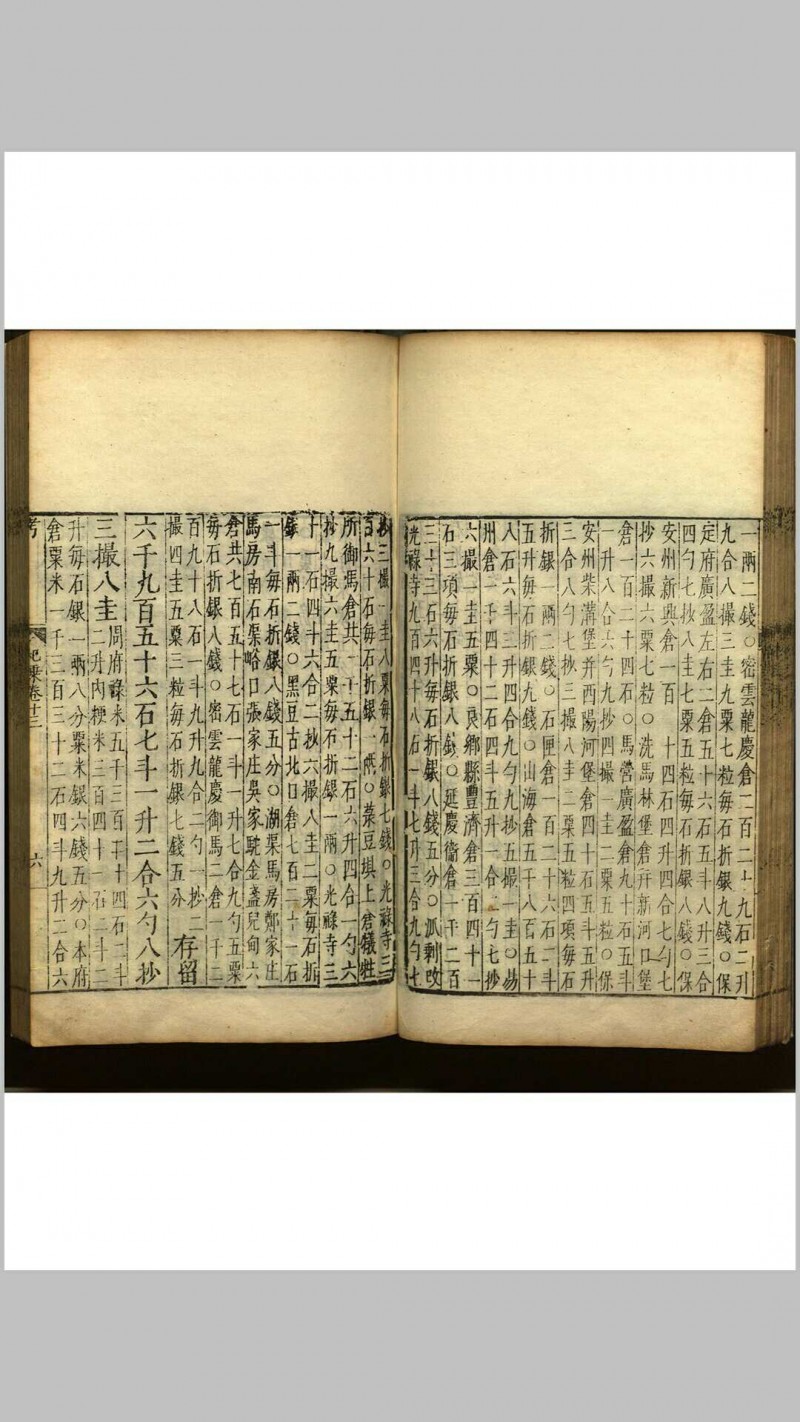 一兩二錢○密雲龍慶倉二百二十九石二升
九合八撮三圭九粟七粒每石折銀九錢○保
定府廣盈左右二倉五十六石五斗八升三合
四勺七抄八圭七粟五粒每石折銀八錢○保
安州新興倉一百 十四石四升四合七勺七
抄六撮六粟七粒○洗馬林堡倉并新河口堡
倉一百二十四石○馬營廣盈倉九十石五斗
一升八合六勺九抄四撮一圭二粟五粒○保
安州柴溝堡并西陽河堡倉四十石五斗五升
三合八勺七抄三撮八圭二粟五粒四項每石
折銀一兩二錢○石匣倉一百二十六石二斗
五升每石折銀九錢○山海倉五千八百五十
八石六斗三升四合九勺九抄五撮一圭○易
州倉一千四十二石四斗五升一合二勺七抄
六撮一圭五粟○良鄉縣豐濟倉三百四十一
石三項每石折銀八錢○延慶衞倉一千二百
三十三石六升每石折銀八錢五分○派剩改
光祿寺九百四十八石一斗七升三合九勺七
抄三撮一圭八粟每石折銀七錢○光祿寺三
百六十石每石折銀一兩○菉豆壩上倉犧牲
所御馬倉共一千五十二石六升四合一勺六
抄九撮六圭五粟每石折銀一兩○光祿寺三
十一石四斗六合二抄六撮八圭二粟每石折
銀一兩二錢○黑豆古北口倉七百二十一石
一斗每石折銀八錢五分○湖渠馬房鄭家庄
馬房南石渠峪口張家庄吳家駝金盞兒甸六
倉共七百五十七石一斗一升七合九勺五粟
每石折銀八錢○密雲龍慶御馬二倉一千二
百九十八石一斗九升九合二勺一抄二
撮四圭五粟三粒每石折銀七錢五分 存留
六千九百五十六石七斗一升二合六勺八抄
三撮八圭 周府祿米五千三百五十四石二斗
二升內粳米三百四十一石二斗二
升每石銀一兩八分粟米銀六錢五分○本府
倉粟米一千二百三十二石四斗九升二合六
考 卷十三 六